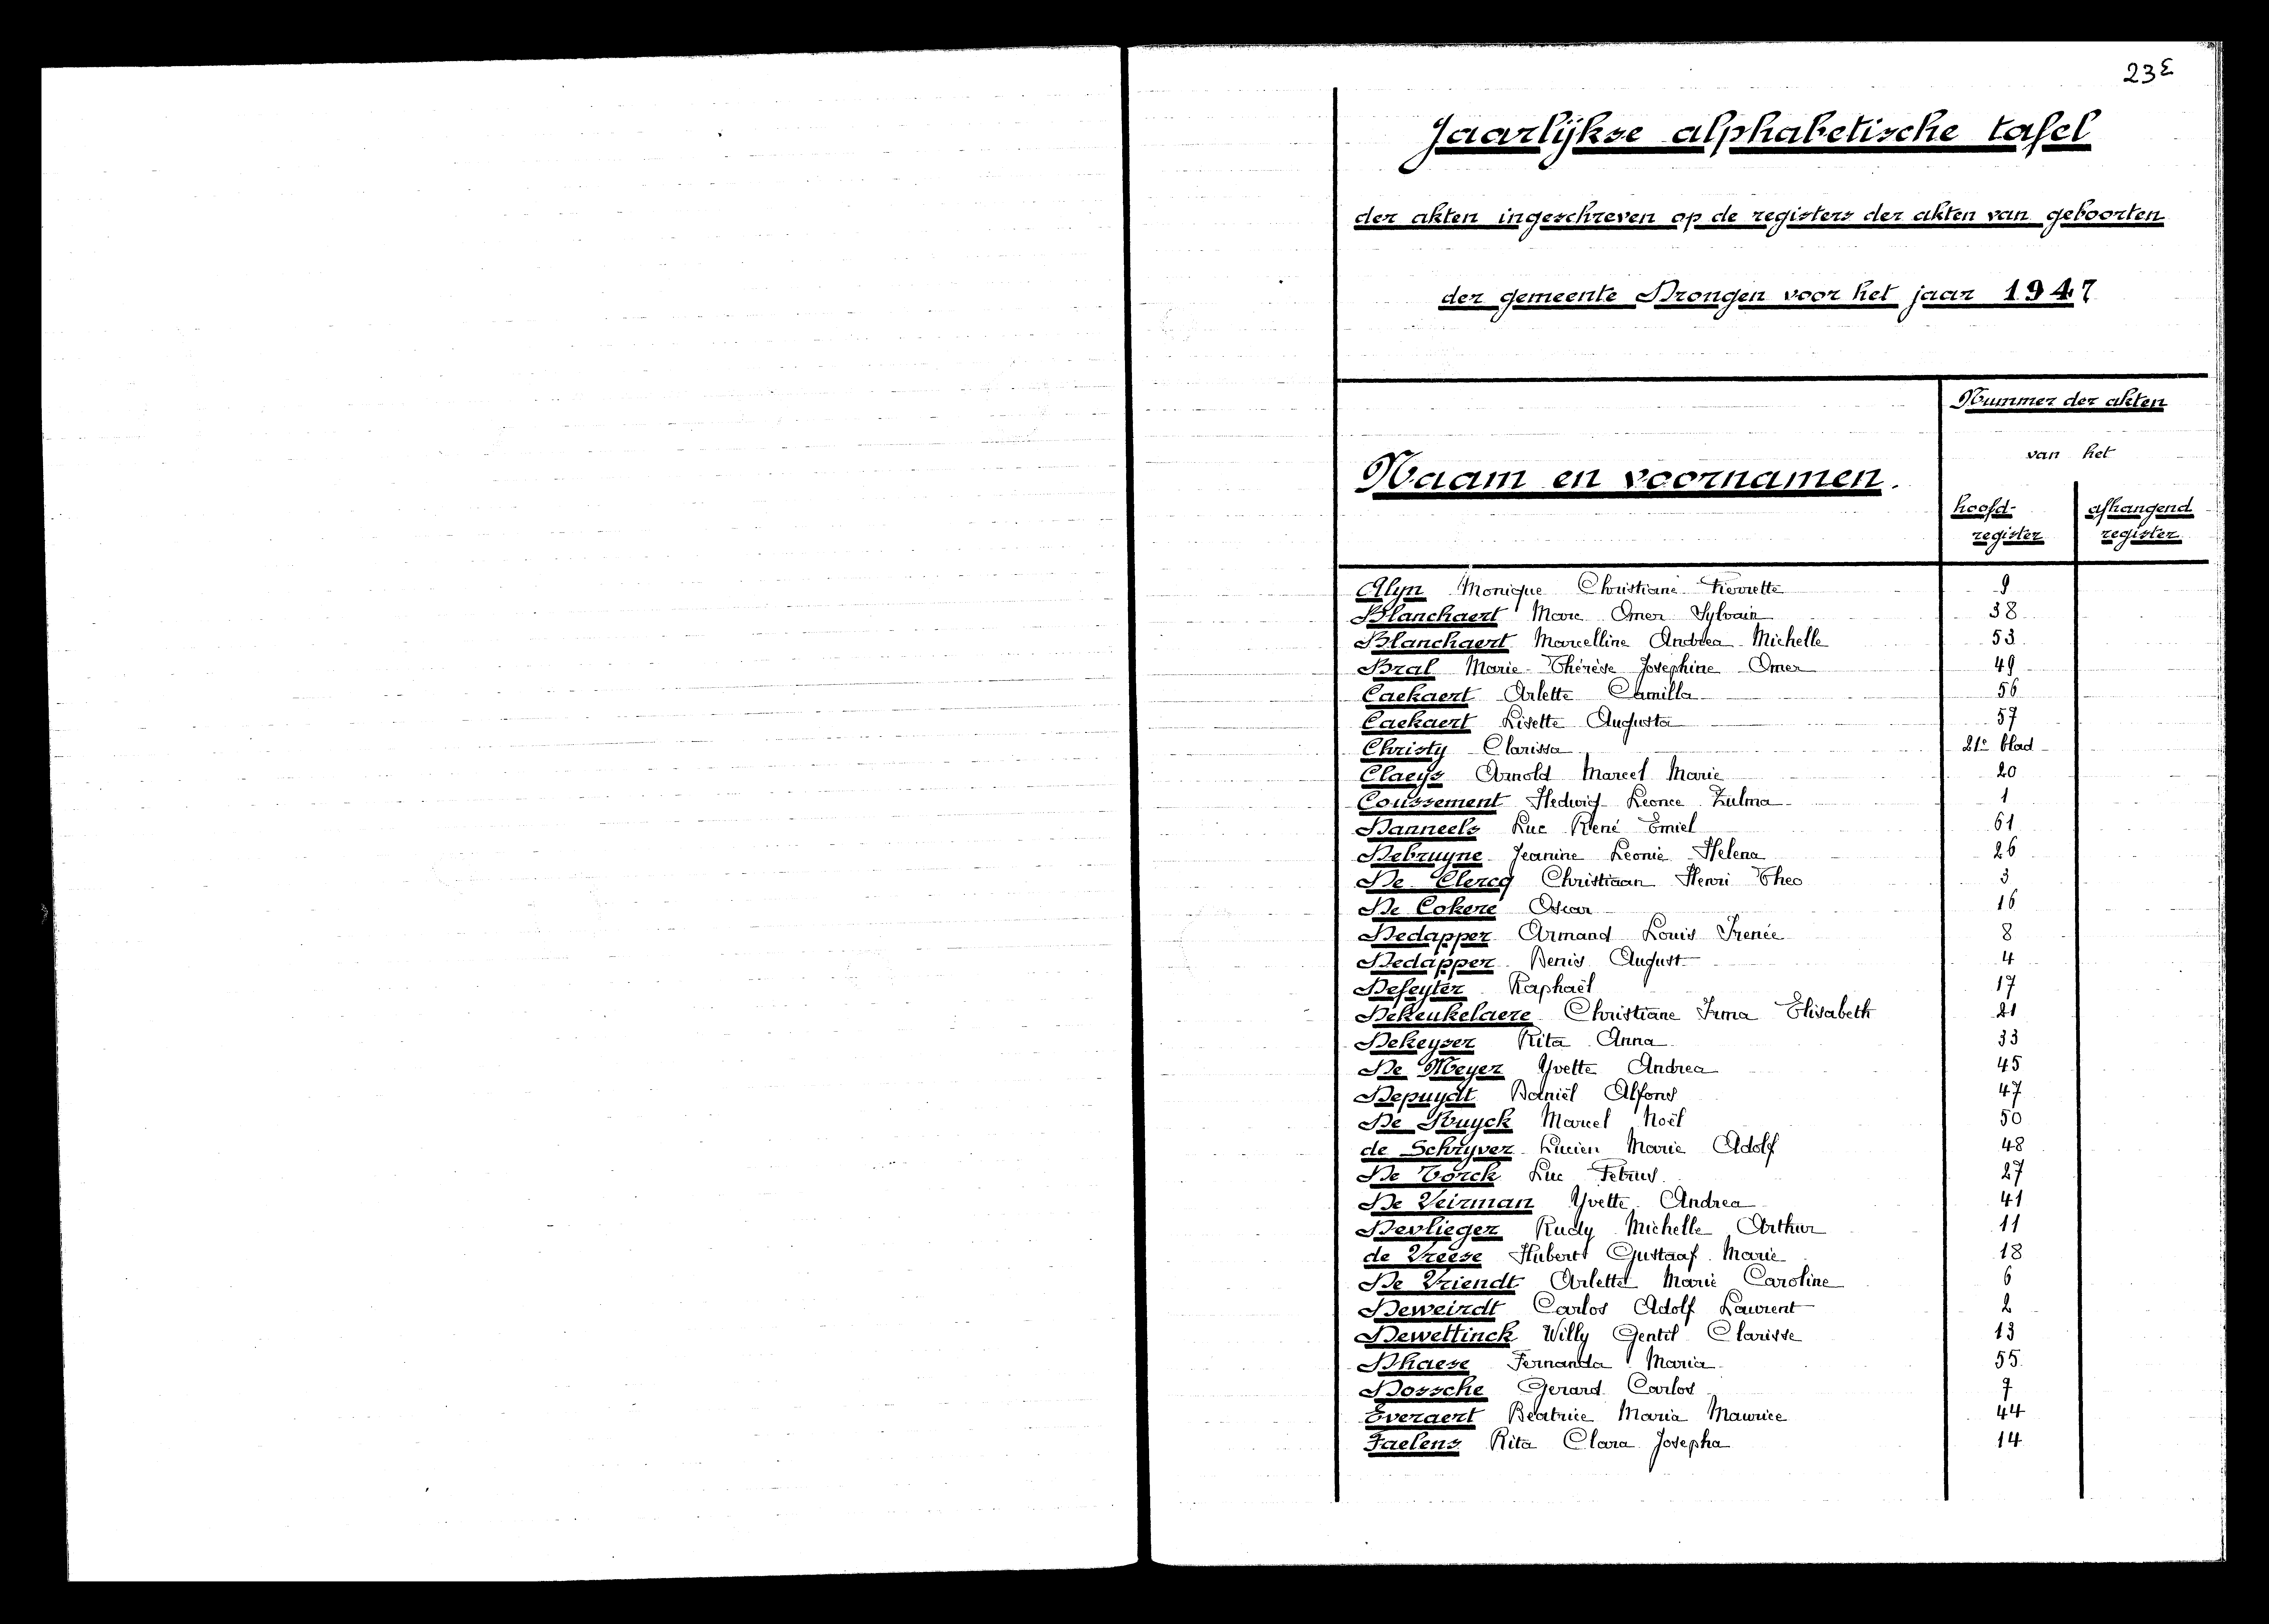 23e
Jaarlijkse alphabetische tafel
der akten ingeschreven op de registers der akten van geboorten
der gemeente Drongen voor het jaar 1947
Nummer der akten
van het
Naam en voornamen.
hoofd- afhangend
register register
Alyn Monique Christiane Pierrette 9
Blanchaert Marc Omer Sylvain 38
Blanchaert Marcelline Andrea Michelle 53
Bral Marie-Thérèse Josephine Omer 49
Caekaert Arlette Camilla 56
Caekaert Lisette Augusta 57
Christy Clarissa 21e blad
Claeys Arnold Marcel Marie 20
Coussement Hedwig Leonce Zulma 1
Danneels Luc René Emiel 61
Debruyne Jeanine Leonie Helena 26
De Clercq Christiaan Henri Theo 3
De Cokere Oscar 16
Dedapper Armand Louis Irenée 8
Dedapper Denis August 4
Defeyter Raphaël 17
Dekeukelaere Christiane Irma Elisabeth 21
Dekeyser Rita Anna 33
De Meyer Yvette Andrea 45
Depuydt Daniël Alfons 47
De Ruyck Marcel Noël 50
de Schryver Lucien Marie Adolf 48
De Torck Luc Petrus 27
De Veirman Yvette Andrea 41
Devlieger Rudy Michelle Arthur 11
de Vreese Hubert Gustaaf Marie 18
De Vriendt Arlette Marie Caroline 6
Deweirdt Carlos Adolf Laurent 2
Dewettinck Willy Gentil Clarisse 13
Dhaese Fernanda Maria 55
Dossche Gerard Carlos 7
Everaert Beatrice Maria Maurice 44
Faelens Rita Clara Josepha 14